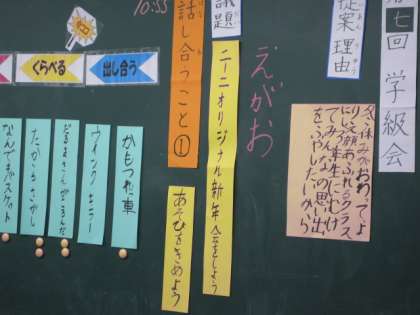 第七回学級会
提案理由
冬休みがおわって、よ
り笑顔あふれるクラス
にして、三年生にむけ
てみんなの思い出
をふやしたいから
えがお
議題
二ー二オリジナル新年会をしよう
話し合うこと①
あそびをきめよう
10:55
出し合う
くらべる
かもつれっ車
ウインクキラー
だるまさんがころんだ
たからさがし
なんでもバスケット